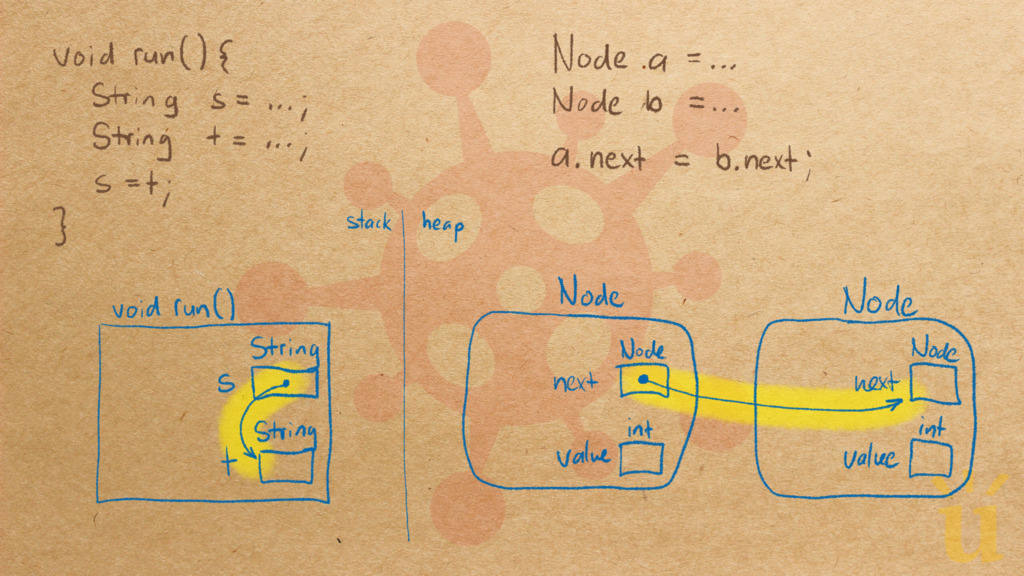 void run(){
String s = ...;
String t = ...;
s = t;
}
Node .a = ...
Node b = ...
a.next = b.next;
stack
heap
void run()
String
s
String
t
Node
Node
next
int
value
Node
Node
next
int
value
ú